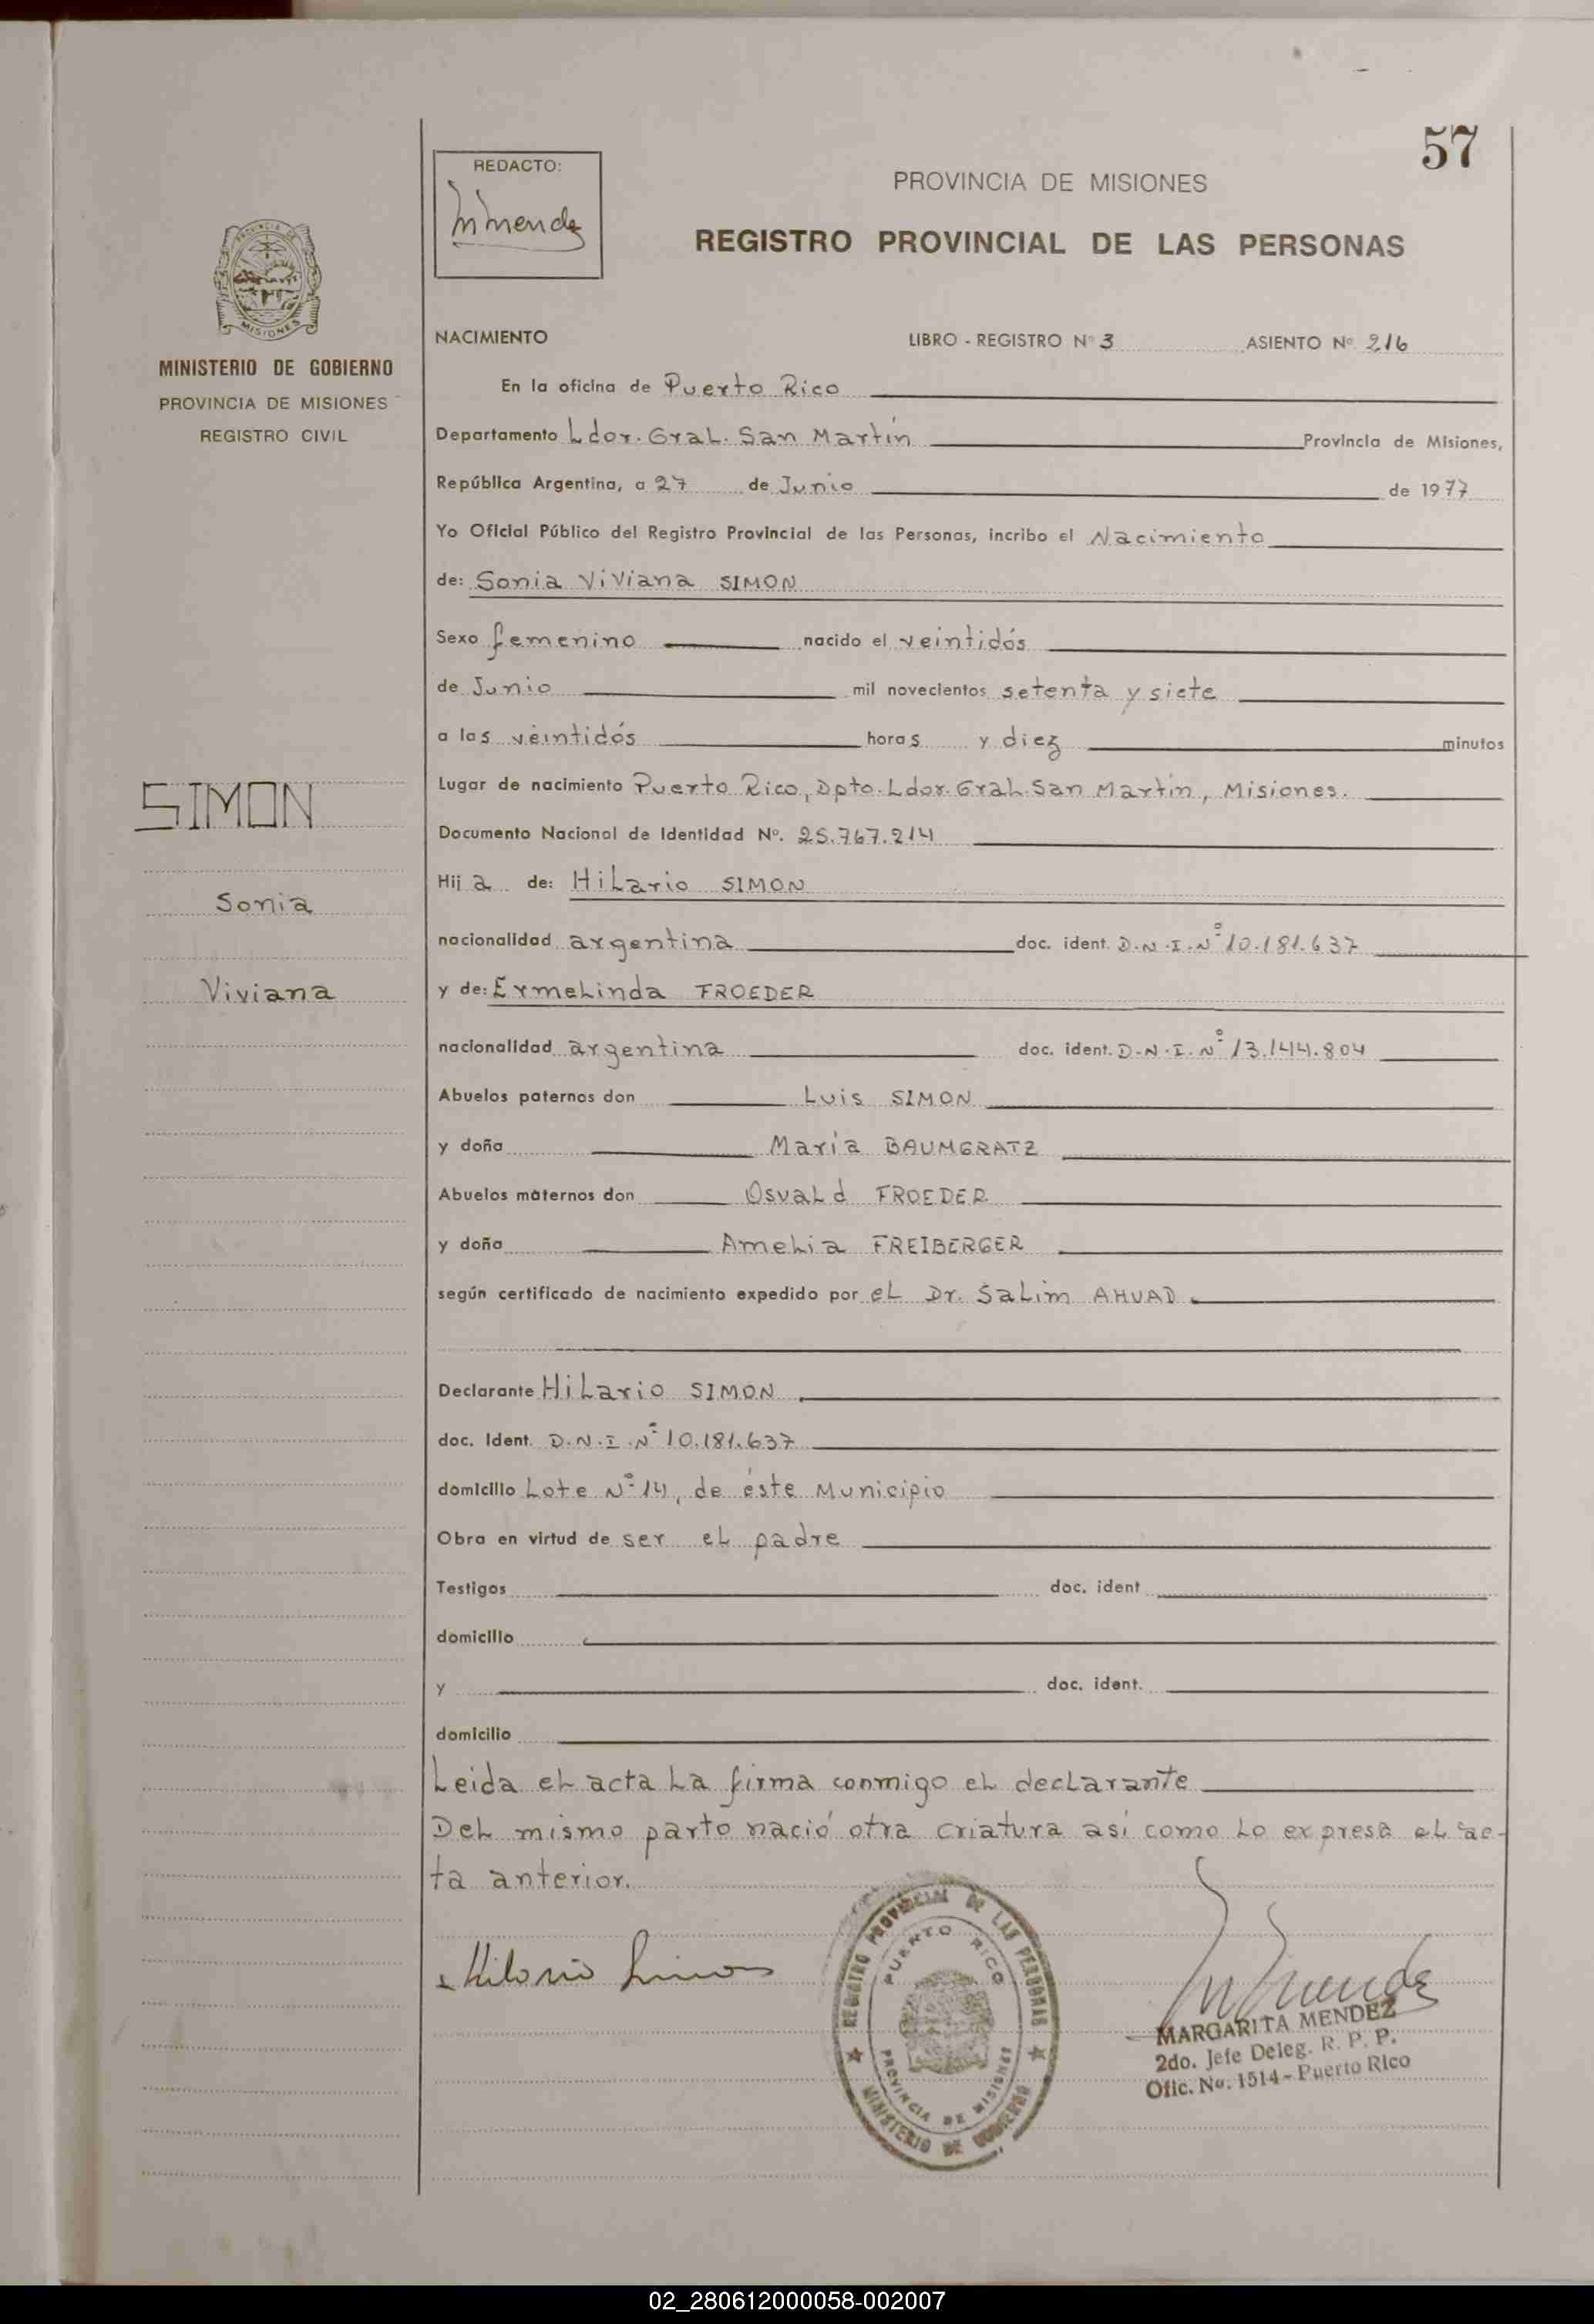 57
REDACTO:
MMendez
PROVINCIA DE MISIONES
REGISTRO PROVINCIAL DE LAS PERSONAS
MISIONES
MINISTERIO DE GOBIERNO
PROVINCIA DE MISIONES
REGISTRO CIVIL
SIMON
Sonia
Viviana
NACIMIENTO LIBRO - REGISTRO Nº 3 ASIENTO Nº 216
En la oficina de Puerto Rico
Departamento Ldor. Gral. San Martín Provincia de Misiones,
República Argentina, a 27 de Junio de 1977
Yo Oficial Público del Registro Provincial de las Personas, incribo el Nacimiento
de: Sonia Viviana SIMON
Sexo femenino nacido el veintidós
de Junio mil novecientos setenta y siete
a las veintidós horas y diez minutos
Lugar de nacimiento Puerto Rico, Dpto. Ldor. Gral. San Martín, Misiones.
Documento Nacional de Identidad Nº. 25.767.214
Hija de: Hilario SIMON
nacionalidad argentina doc. ident. D.N.I.Nº 10.181.637
y de: Ermelinda FROEDER
nacionalidad argentina doc. ident. D.N.I.Nº 13.144.804
Abuelos paternos don Luis SIMON
y doña María BAUMGRATZ
Abuelos maternos don Osvald FROEDER
y doña Amelia FREIBERGER
según certificado de nacimiento expedido por el Dr. Salim AHUAD.
Declarante Hilario SIMON
doc. Ident. D.N.I.Nº 10.181.637
domicilio Lote Nº 14, de éste Municipio
Obra en virtud de ser el padre
Testigos doc. ident
domicilio
y doc. ident.
domicilio
Leida el acta la firma conmigo el declarante
Del mismo parto nació otra criatura así como lo expresa el ac-
ta anterior.
Hilario Simon
REGISTRO PROVINCIAL DE LAS PERSONAS
PUERTO RICO
PROVINCIA DE MISIONES
MINISTERIO DE GOBIERNO
MMendez
MARGARITA MENDEZ
2do. Jefe Deleg. R. P. P.
Ofic. No. 1514 - Puerto Rico
02_280612000058-002007